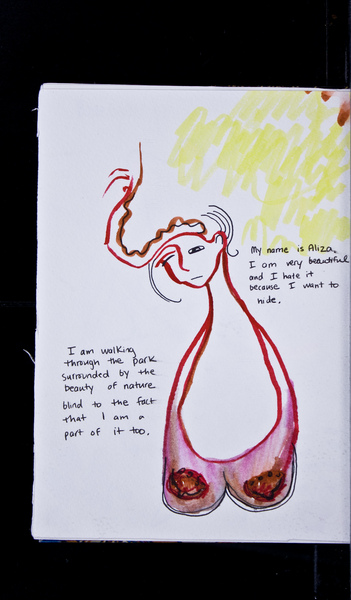 My name is Aliza.
I am very beautiful
and I hate it
because I want to
hide.
I am walking
through the park
surrounded by the
beauty of nature
blind to the fact
that I am a
part of it too.